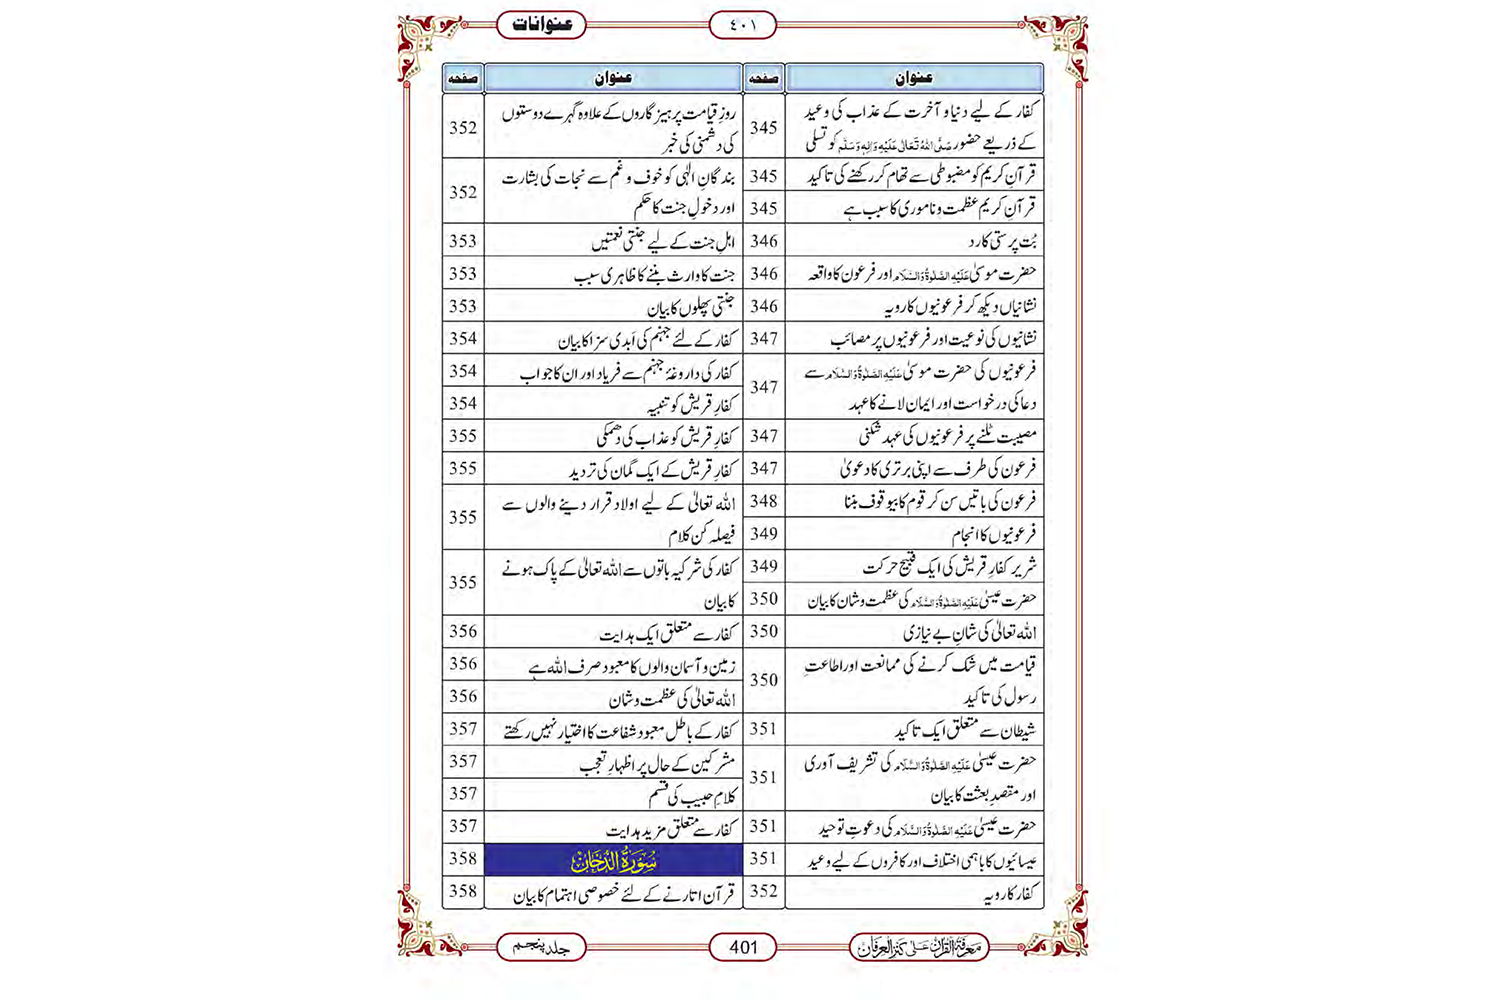 عنوانات
٤٠١
عنوان
صفحہ
عنوان
صفحہ
کفار کے لیے دنیا و آخرت کے عذاب کی وعید
کے ذریعے حضور صَلَّی اللہُ تَعَالٰی عَلَیْہِ وَاٰلِہٖ وَسَلَّم کو تسلی
345
قرآنِ کریم کو مضبوطی سے تھام کر رکھنے کی تاکید
345
قرآنِ کریم عظمت و ناموری کا سبب ہے
345
بُت پرستی کا رد
346
حضرت موسیٰ عَلَیْہِ الصَّلٰوۃُ وَالسَّلَام اور فرعون کا واقعہ
346
نشانیاں دیکھ کر فرعونیوں کا رویہ
346
نشانیوں کی نوعیت اور فرعونیوں پر مصائب
347
فرعونیوں کی حضرت موسیٰ عَلَیْہِ الصَّلٰوۃُ وَالسَّلَام سے
دعا کی درخواست اور ایمان لانے کا عہد
347
مصیبت ٹلنے پر فرعونیوں کی عہد شکنی
347
فرعون کی طرف سے اپنی برتری کا دعویٰ
347
فرعون کی باتیں سن کر قوم کا بیوقوف بننا
348
فرعونیوں کا انجام
349
شریر کفارِ قریش کی ایک قبیح حرکت
349
حضرت عیسیٰ عَلَیْہِ الصَّلٰوۃُ وَالسَّلَام کی عظمت و شان کا بیان
350
اللہ تعالیٰ کی شانِ بے نیازی
350
قیامت میں شک کرنے کی ممانعت اور اطاعتِ
رسول کی تاکید
350
شیطان سے متعلق ایک تاکید
351
حضرت عیسیٰ عَلَیْہِ الصَّلٰوۃُ وَالسَّلَام کی تشریف آوری
اور مقصدِ بعثت کا بیان
351
حضرت عیسیٰ عَلَیْہِ الصَّلٰوۃُ وَالسَّلَام کی دعوتِ توحید
351
عیسائیوں کا باہمی اختلاف اور کافروں کے لیے وعید
351
کفار کا رویہ
352
روزِ قیامت پرہیزگاروں کے علاوہ گہرے دوستوں
کی دشمنی کی خبر
352
بندگانِ الٰہی کو خوف و غم سے نجات کی بشارت
اور دخولِ جنت کا حکم
352
اہلِ جنت کے لیے جنتی نعمتیں
353
جنت کا وارث بننے کا ظاہری سبب
353
جنتی پھلوں کا بیان
353
کفار کے لئے جہنم کی اَبدی سزا کا بیان
354
کفار کی داروغۂ جہنم سے فریاد اور ان کا جواب
354
کفارِ قریش کو تنبیہ
354
کفارِ قریش کو عذاب کی دھمکی
355
کفارِ قریش کے ایک گمان کی تردید
355
اللہ تعالیٰ کے لیے اولاد قرار دینے والوں سے
فیصلہ کن کلام
355
کفار کی شرکیہ باتوں سے اللہ تعالیٰ کے پاک ہونے
کا بیان
355
کفار سے متعلق ایک ہدایت
356
زمین و آسمان والوں کا معبود صرف اللہ ہے
356
اللہ تعالیٰ کی عظمت و شان
356
کفار کے باطل معبود شفاعت کا اختیار نہیں رکھتے
357
مشرکین کے حال پر اظہارِ تعجب
357
کلامِ حبیب کی قسم
357
کفار سے متعلق مزید ہدایت
357
سُوْرَۃُ الدُّخَان
358
قرآن اتارنے کے لئے خصوصی اہتمام کا بیان
358
معرفۃ القرآن علیٰ کنز العرفان
401
جلد پنجم